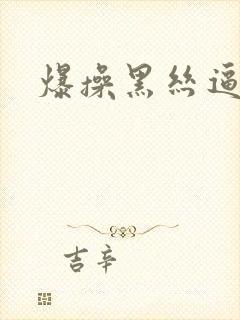 爆操黑丝逼
吉辛